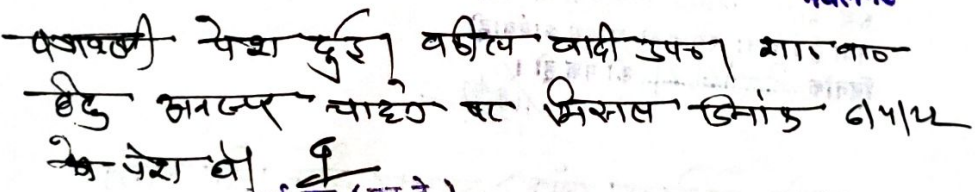 पत्रावली पेश हुई। वकील वादी उप०। शा० वा०
हेतु अवसर चाहने पर मिसल दिनांक 6/4/22
को पेश हो।